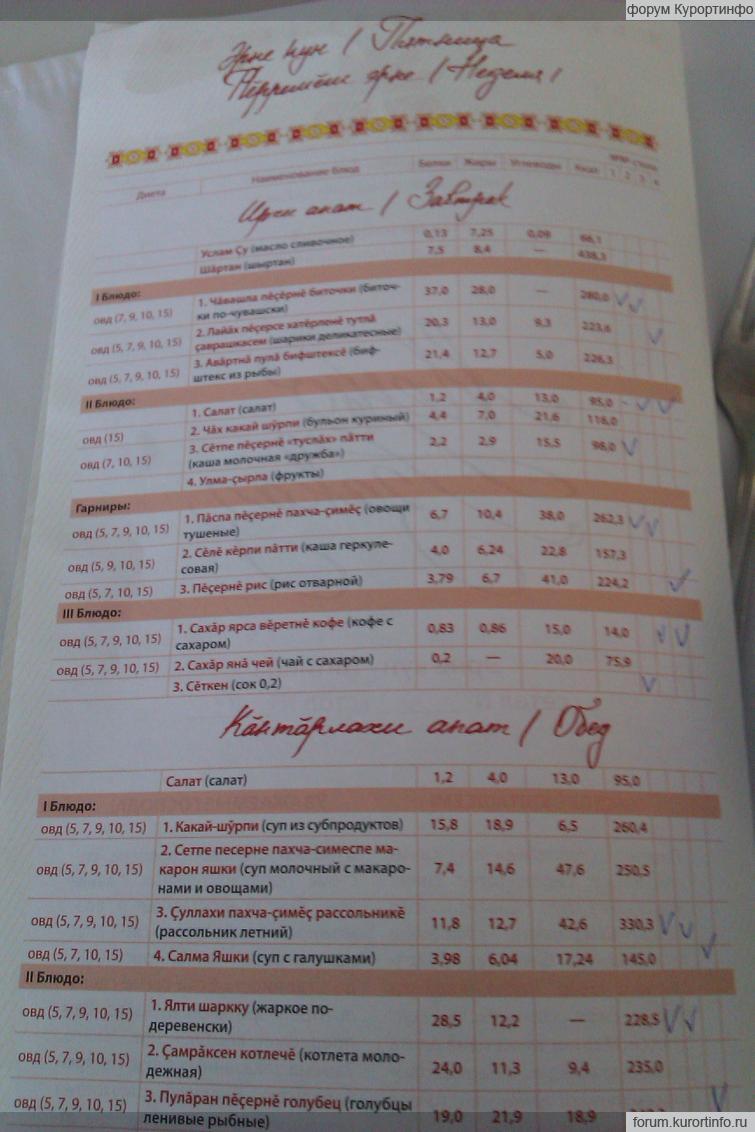 форум Курортинфо
Эрне кун / Пятница
Пӗрремӗш эрне / Неделя I
Диета Наименование блюд Белки Жиры Углеводы Ккал 1 2 3 4
Ирхи апат / Завтрак
Услам Ҫу (масло сливочное) 0,13 7,25 0,09 66,1
Шӑртан (шыртан) 7,5 8,4 — 438,3
I Блюдо:
овд (7, 9, 10, 15) 1. Чӑвашла пӗҫӗрнӗ биточки (биточ- 37,0 28,0 — 280,0
ки по-чувашски)
овд (5, 7, 9, 10, 15) 2. Лайӑх пӗҫерсе хатӗрленӗ тутлӑ 20,3 13,0 9,3 223,6
ҫаврашкасем (шарики деликатесные)
овд (5, 7, 9, 10, 15) 3. Авӑртнӑ пулӑ бифштексӗ (биф- 21,4 12,7 5,0 226,3
штекс из рыбы)
II Блюдо:
1. Салат (салат) 1,2 4,0 13,0 95,0
овд (15) 2. Чӑх какай шӳрпи (бульон куриный) 4,4 7,0 21,6 118,0
овд (7, 10, 15) 3. Сӗтпе пӗҫернӗ «туслӑх» пӑтти 2,2 2,9 15,5 98,0
(каша молочная «дружба»)
4. Улма-ҫырла (фрукты)
Гарниры:
овд (5, 7, 9, 10, 15) 1. Пӑспа пӗҫернӗ пахча-ҫимӗҫ (овощи 6,7 10,4 38,0 262,3
тушеные)
овд (5, 9, 10, 15) 2. Сӗлӗ кӗрпи пӑтти (каша геркуле- 4,0 6,24 22,8 157,3
совая)
овд (5, 7, 10, 15) 3. Пӗҫернӗ рис (рис отварной) 3,79 6,7 41,0 224,2
III Блюдо:
овд (5, 7, 9, 10, 15) 1. Сахӑр ярса вӗретнӗ кофе (кофе с 0,83 0,86 15,0 14,0
сахаром)
овд (5, 7, 9, 10, 15) 2. Сахӑр янӑ чей (чай с сахаром) 0,2 — 20,0 75,9
3. Сӗткен (сок 0,2)
Кӑнтӑрлахи апат / Обед
Салат (салат) 1,2 4,0 13,0 95,0
I Блюдо:
овд (5, 7, 9, 10, 15) 1. Какай-шӳрпи (суп из субпродуктов) 15,8 18,9 6,5 260,4
2. Сетпе песерне пахча-симеспе ма-
овд (5, 7, 9, 10, 15) карон яшки (суп молочный с макаро- 7,4 14,6 47,6 250,5
нами и овощами)
овд (5, 7, 9, 10, 15) 3. Ҫуллахи пахча-ҫимӗҫ рассольникӗ 11,8 12,7 42,6 330,3
(рассольник летний)
овд (5, 7, 10, 15) 4. Салма Яшки (суп с галушками) 3,98 6,04 17,24 145,0
II Блюдо:
овд (5, 7, 9, 10, 15) 1. Ялти шаркку (жаркое по- 28,5 12,2 — 228,5
деревенски)
овд (5, 7, 9, 10, 15) 2. Ҫамрӑксен котлечӗ (котлета моло- 24,0 11,3 9,4 235,0
дежная)
овд (5, 7, 9, 10, 15) 3. Пулӑран пӗҫернӗ голубец (голубцы 19,0 21,9 18,9
ленивые рыбные)
forum.kurortinfo.ru